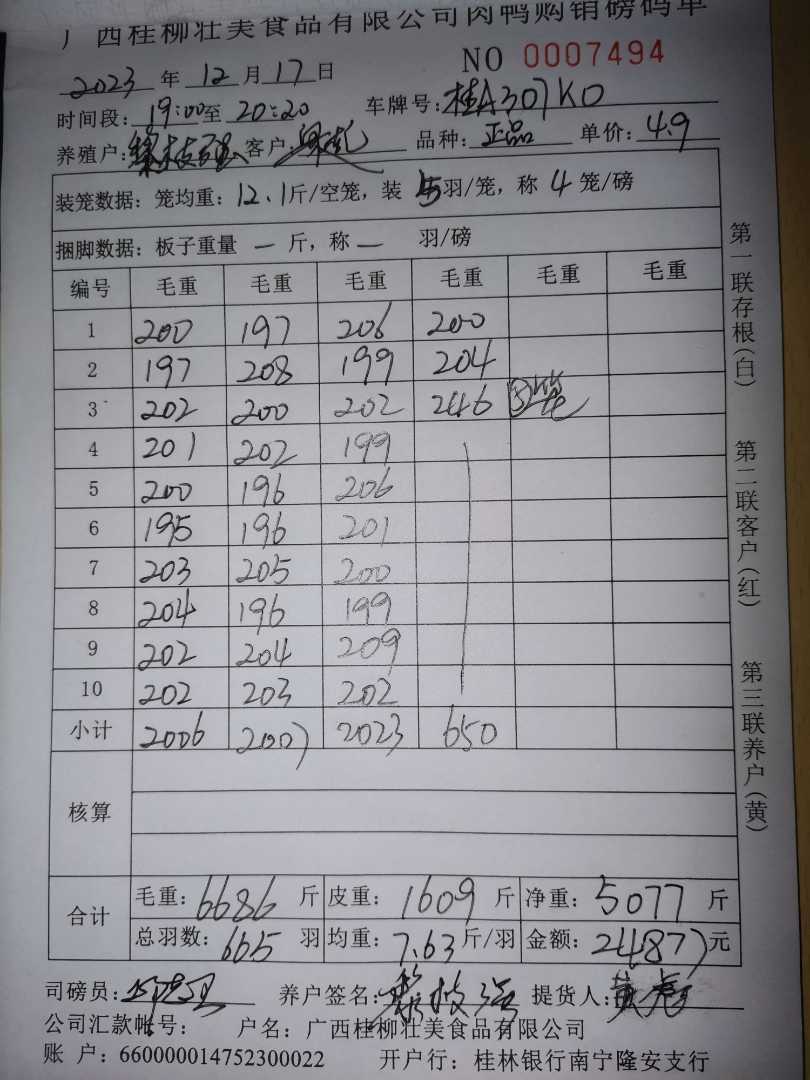 广西桂柳壮美食品有限公司肉鸭购销磅码单
NO 0007494
2023 年 12 月 17 日
时间段: 19:00 至 20:20 车牌号: 桂A307K0
养殖户: 客户: 品种: 正品 单价: 4.9
装笼数据: 笼均重: 12.1 斤/空笼, 装 5 羽/笼, 称 4 笼/磅
捆脚数据: 板子重量 — 斤, 称 — 羽/磅
编号 毛重 毛重 毛重 毛重 毛重 毛重
1 200 197 206 200
2 197 208 199 204
3 202 200 202 246 ⑤笼
4 201 202 199
5 200 196 206
6 195 196 201
7 203 205 200
8 204 196 199
9 202 204 209
10 202 203 202
小计 2006 2007 2023 650
核算
合计 毛重: 6686 斤 皮重: 1609 斤 净重: 5077 斤
总羽数: 665 羽 均重: 7.63 斤/羽 金额: 24877 元
司磅员: 养户签名: 提货人:
公司汇款帐号: 户名: 广西桂柳壮美食品有限公司
账 户: 660000014752300022 开户行: 桂林银行南宁隆安支行
第一联存根(白)
第二联客户(红)
第三联养户(黄)